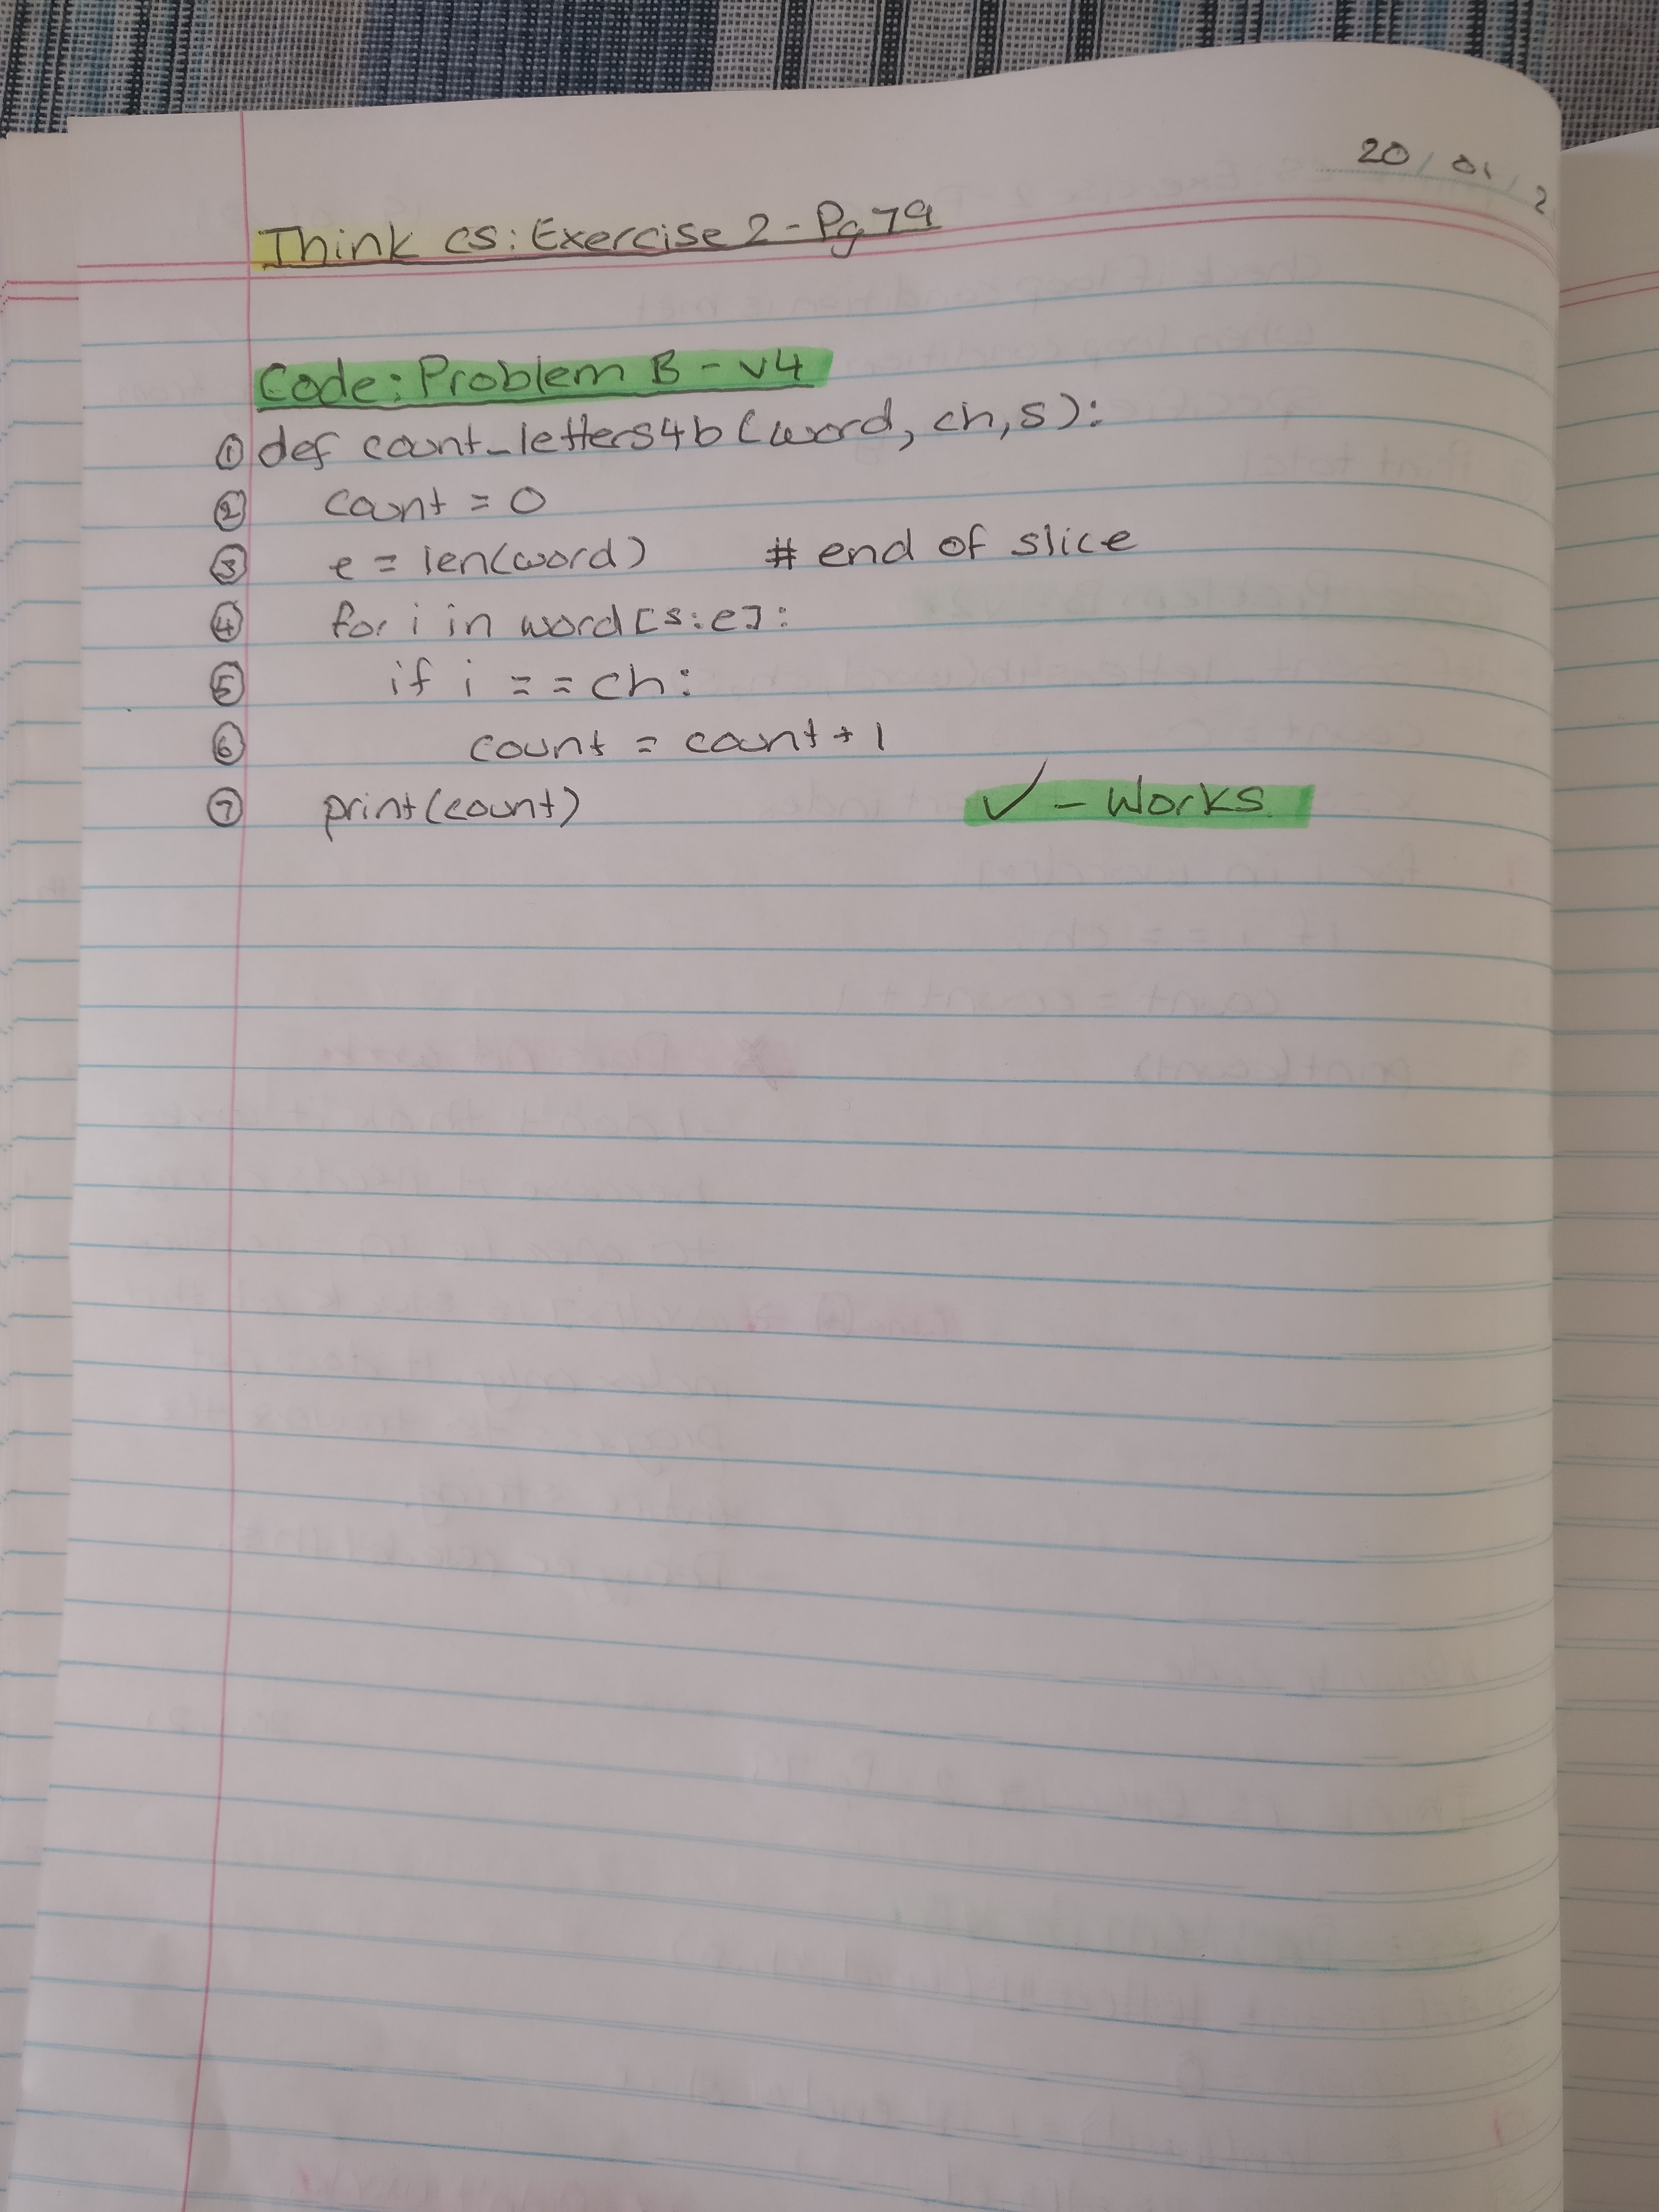 20 / 01 / 2
Think CS: Exercise 2 - Pg 79
Code: Problem B - v4
① def count_letters4b (word, ch, s):
② count = 0
③ e = len(word) # end of slice
④ for i in word[s:e]:
⑤ if i == ch:
⑥ count = count + 1
⑦ print(count) ✓ - Works